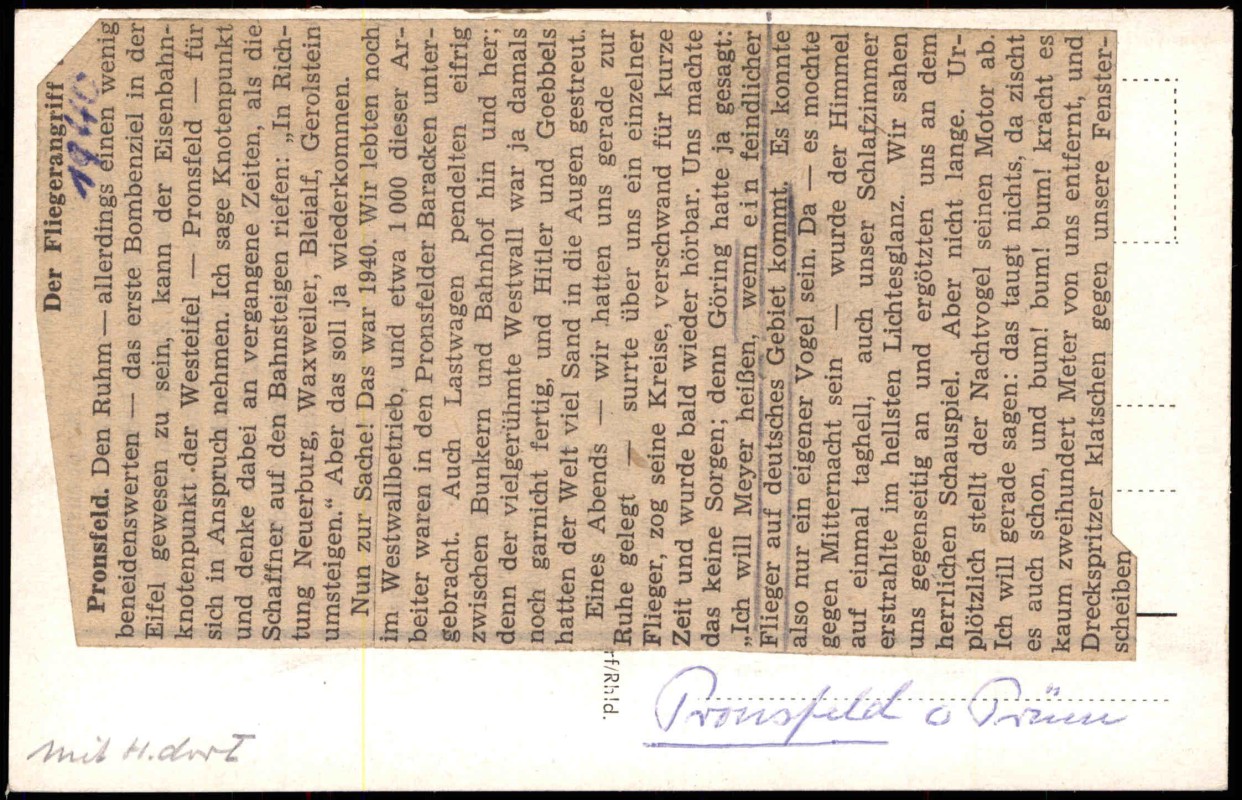 Der Fliegerangriff
1940.
Pronsfeld. Den Ruhm — allerdings einen wenig
beneidenswerten — das erste Bombenziel in der
Eifel gewesen zu sein, kann der Eisenbahn-
knotenpunkt der Westeifel — Pronsfeld — für
sich in Anspruch nehmen. Ich sage Knotenpunkt
und denke dabei an vergangene Zeiten, als die
Schaffner auf den Bahnsteigen riefen: „In Rich-
tung Neuerburg, Waxweiler, Bleialf, Gerolstein
umsteigen.“ Aber das soll ja wiederkommen.
Nun zur Sache! Das war 1940. Wir lebten noch
im Westwallbetrieb, und etwa 1000 dieser Ar-
beiter waren in den Pronsfelder Baracken unter-
gebracht. Auch Lastwagen pendelten eifrig
zwischen Bunkern und Bahnhof hin und her;
denn der vielgerühmte Westwall war ja damals
noch garnicht fertig, und Hitler und Goebbels
hatten der Welt viel Sand in die Augen gestreut.
Eines Abends — wir hatten uns gerade zur
Ruhe gelegt — surrte über uns ein einzelner
Flieger, zog seine Kreise, verschwand für kurze
Zeit und wurde bald wieder hörbar. Uns machte
das keine Sorgen; denn Göring hatte ja gesagt:
„Ich will Meyer heißen, wenn ein feindlicher
Flieger auf deutsches Gebiet kommt. Es konnte
also nur ein eigener Vogel sein. Da — es mochte
gegen Mitternacht sein — wurde der Himmel
auf einmal taghell, auch unser Schlafzimmer
erstrahlte im hellsten Lichtesglanz. Wir sahen
uns gegenseitig an und ergötzten uns an dem
herrlichen Schauspiel. Aber nicht lange. Ur-
plötzlich stellt der Nachtvogel seinen Motor ab.
Ich will gerade sagen: das taugt nichts, da zischt
es auch schon, und bum! bum! bum! kracht es
kaum zweihundert Meter von uns entfernt, und
Dreckspritzer klatschen gegen unsere Fenster-
scheiben
rf/Rhld.
Pronsfeld b Prüm
mit H. dort